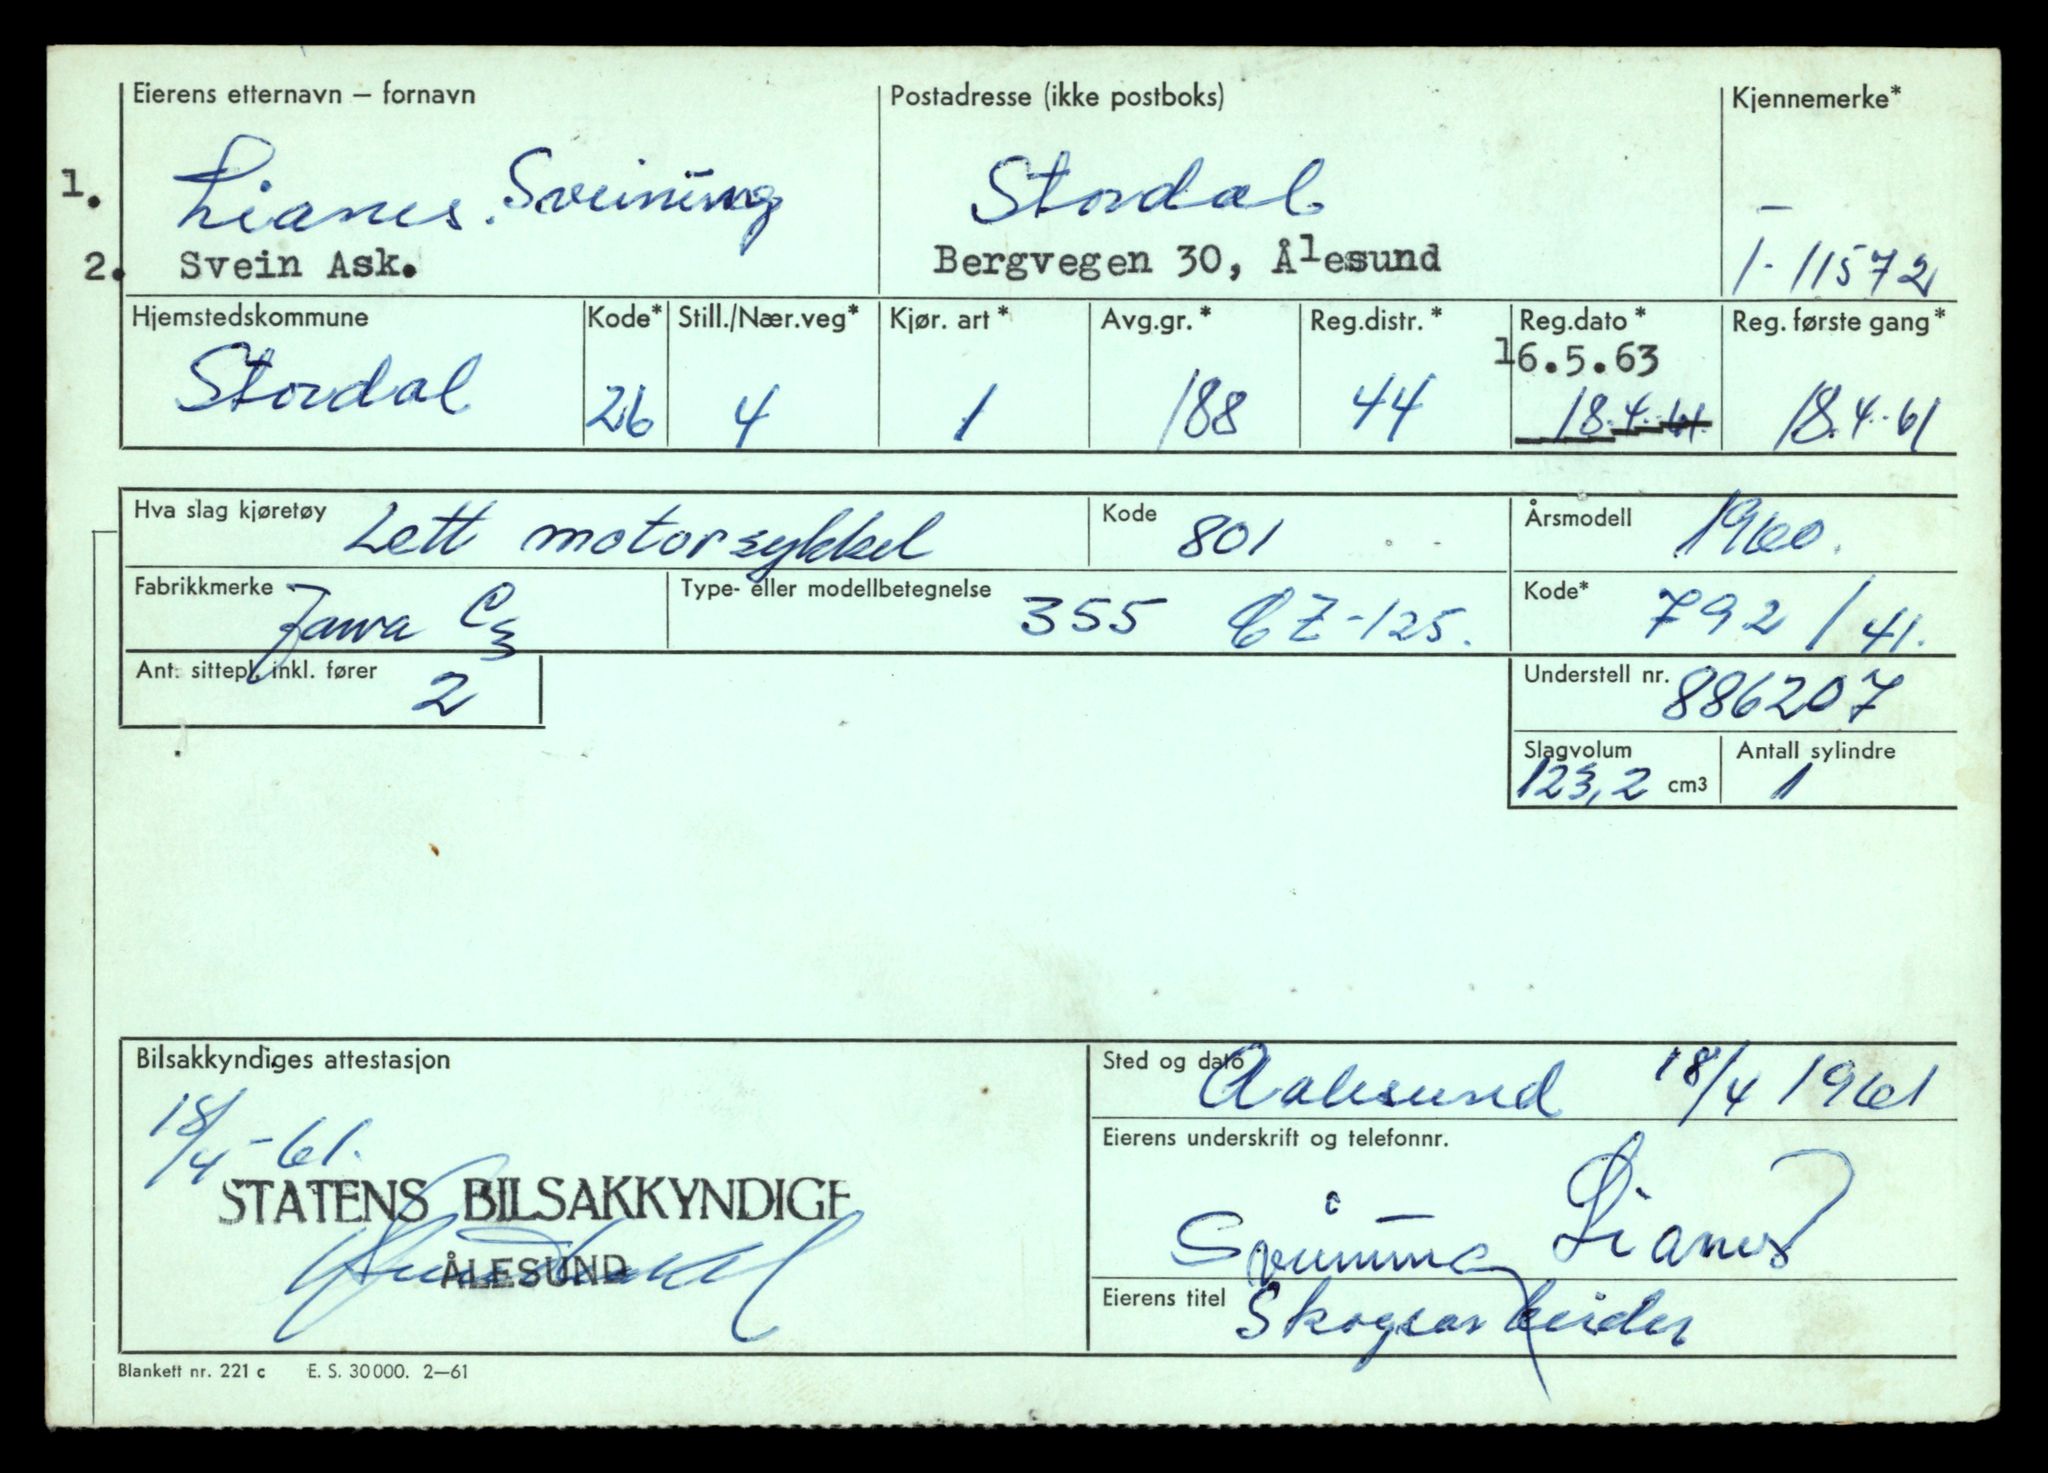 Eierens etternavn – fornavn
Postadresse (ikke postboks)
Kjennemerke*
1. Lianes, Sveinung
Stordal
2. Svein Ask.
Bergvegen 30, Ålesund
1-11572
Hjemstedskommune
Kode*
Still./Nær.veg*
Kjør. art*
Avg.gr.*
Reg.distr.*
Reg.dato*
Reg. første gang*
16.5.63
Stordal
26
4
1
188
44
18.4.61.
18.4.61
Hva slag kjøretøy Lett motorsykkel
Kode 801
Årsmodell 1960.
Fabrikkmerke Jawa Cz
Type- eller modellbetegnelse 355 CZ-125.
Kode* 792/41.
Ant. sittepl. inkl. fører 2
Understell nr. 886207
Slagvolum
Antall sylindre
123,2 cm3
1
Bilsakkyndiges attestasjon
Sted og dato Aalesund 18/4 1961
18/4-61.
Eierens underskrift og telefonnr.
STATENS BILSAKKYNDIGE
ÅLESUND
Sveinung Lianes
Eierens titel Skogsarbeider
Blankett nr. 221 c E. S. 30000. 2–61